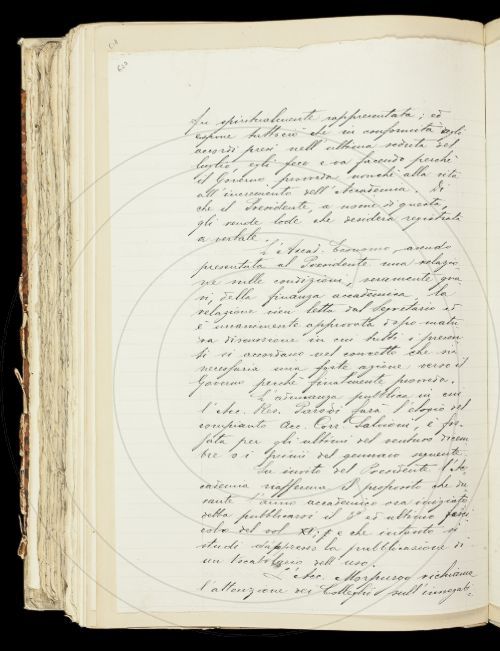 fu spiritualmente rappresentata; ed
espone tuttociò che in conformità degli
accordi presi nell'ultima seduta del
luglio egli fece e va facendo perchè
il Governo provveda nonchè alla vita
all'incremento dell'Accademia. Di
che il Presidente, a nome di questa,
gli rende lode che desidera registrata
a verbale.
L'Accad. Economo, avendo
presentata al Presidente una relazio-
ne sulle condizioni, veramente gra-
vi, della finanza accademica la
relazione vien letta dal Segretario ed
è unanimemente approvata dopo matu
ra discussione in cui tutti i presen
ti si accordano nel concetto che sia
necessaria una forte azione verso il
Governo perchè finalmente provveda.
L'adunanza pubblica in cui
l'Acc. Res. Parodi farà l'elogio del
compianto Acc. Corr. Salvioni, è fis-
sata per gli ultimi del venturo dicem
bre o i primi del gennaio seguente.
Su invito del Presidente l'Ac-
cademia rafferma il proposito che du
rante l'anno accademico ora iniziato
debba pubblicarsi il 5° ed ultimo fasci
colo del vol. XI, e che intanto si
studi dappresso la pubblicazione di
un Vocabolario dell'uso.
L'Acc. Morpurgo richiama
l'attenzione dei Colleghi sull'